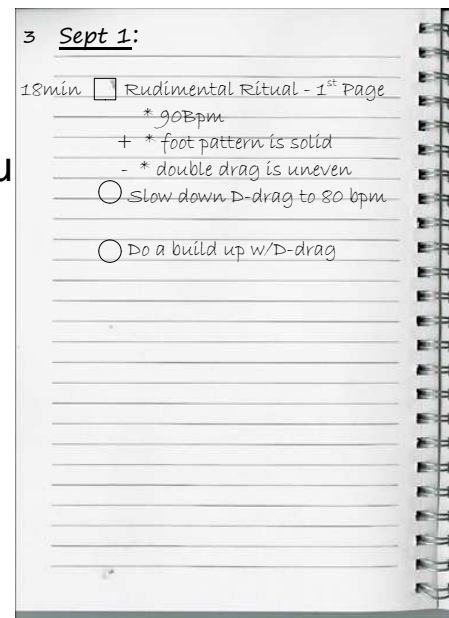 3 Sept 1:
18min Rudimental Ritual - 1st Page
* 90Bpm
+ * foot pattern is solid
- * double drag is uneven
Slow down D-drag to 80 bpm
Do a build up w/D-drag